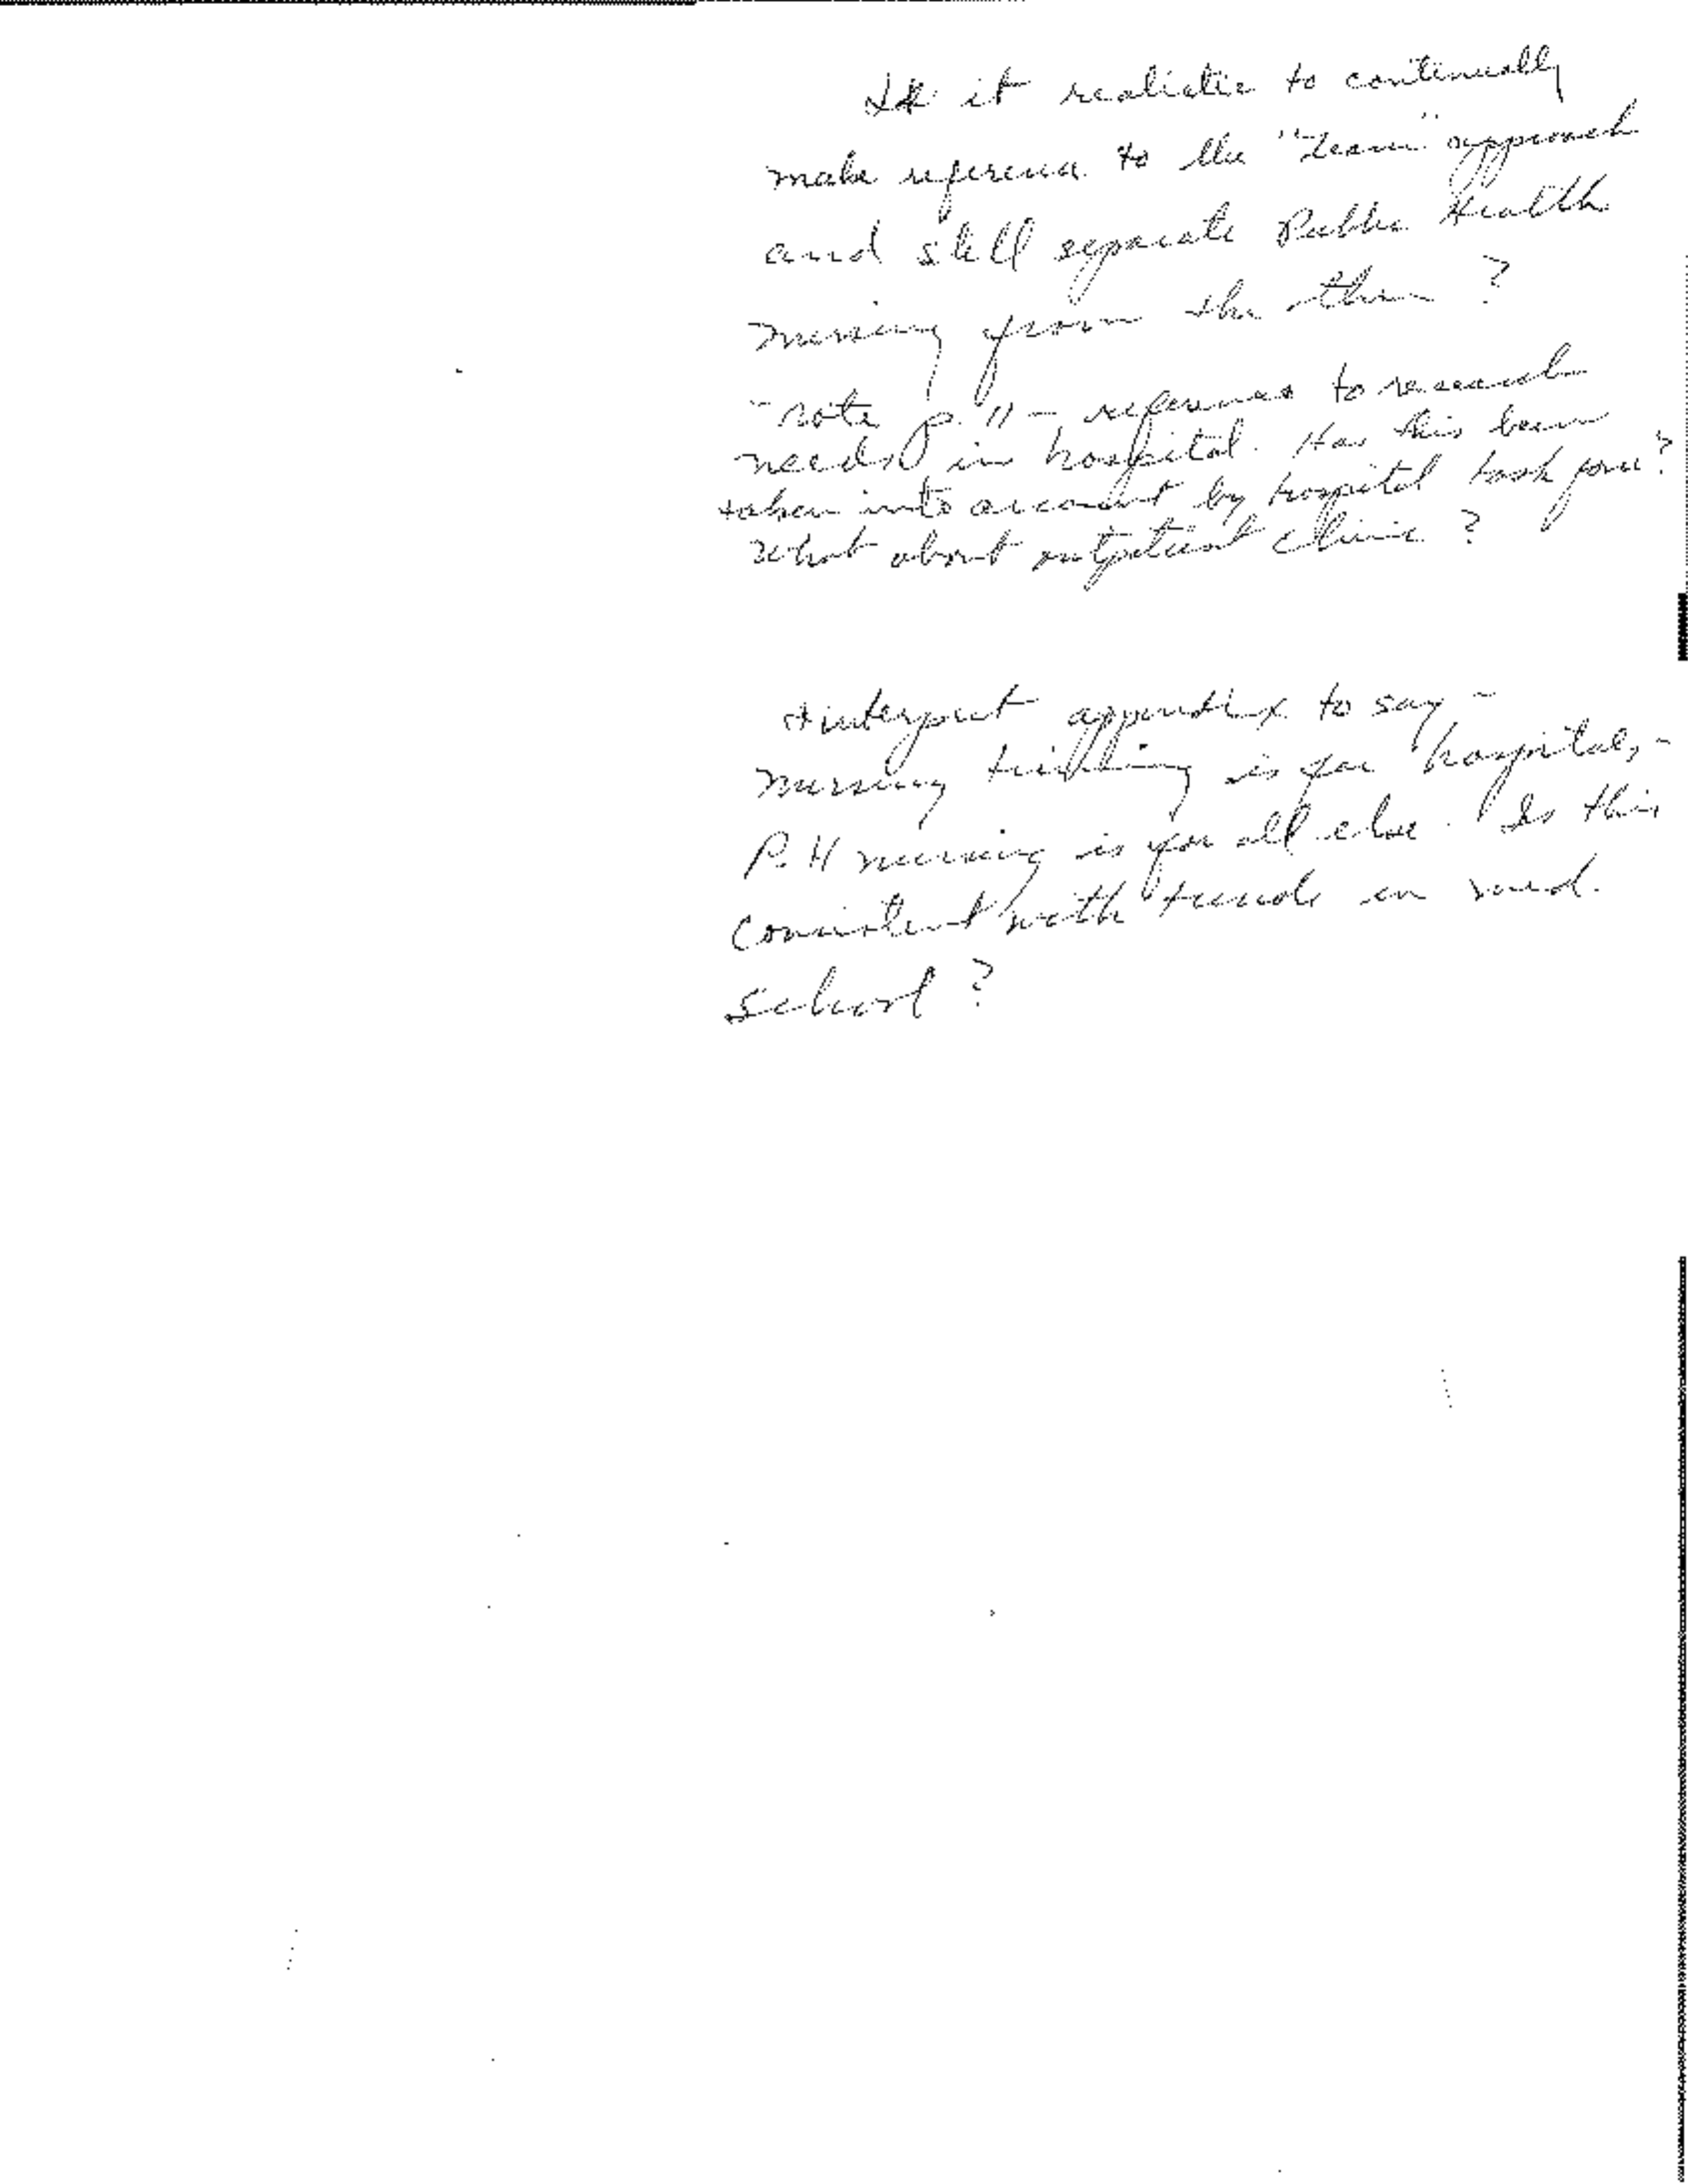 Is it realistic to continually
make reference to the "team" approach
and still separate Public Health
nursing from the other ?
- note p. 11 - references to research
needs in hospital. Has this been
taken into account by hospital task force?
What about outpatient clinic ?
I interpret appendix to say -
nursing is for hospitals, -
P. H nursing is for all else. Is this
consistent with trends in med.
school ?